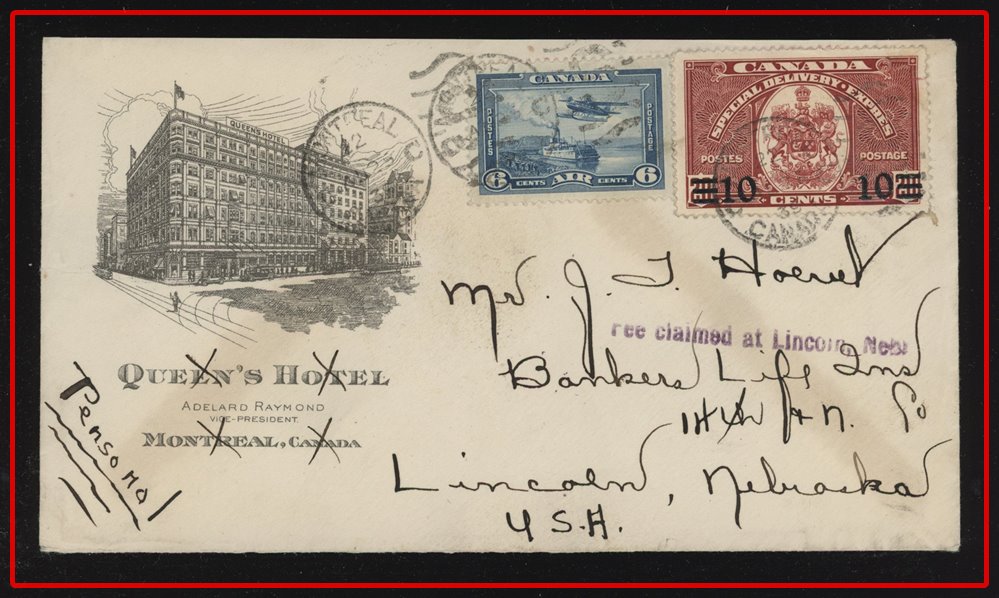 QUEEN'S HOTEL
QUEEN'S HOTEL
ADELARD RAYMOND
VICE-PRESIDENT
MONTREAL, CANADA
Personal
MONTREAL
CANADA
POSTES POSTAGE
6 CENTS AIR CENTS 6
CANADA
SPECIAL DELIVERY · EXPRES
POSTES POSTAGE
10 10
CENTS
CANADA
Mr. J. T.
Fee claimed at Lincoln, Nebr
Bankers Life Ins
Co
14 & N.
Lincoln, Nebraska
U.S.A.